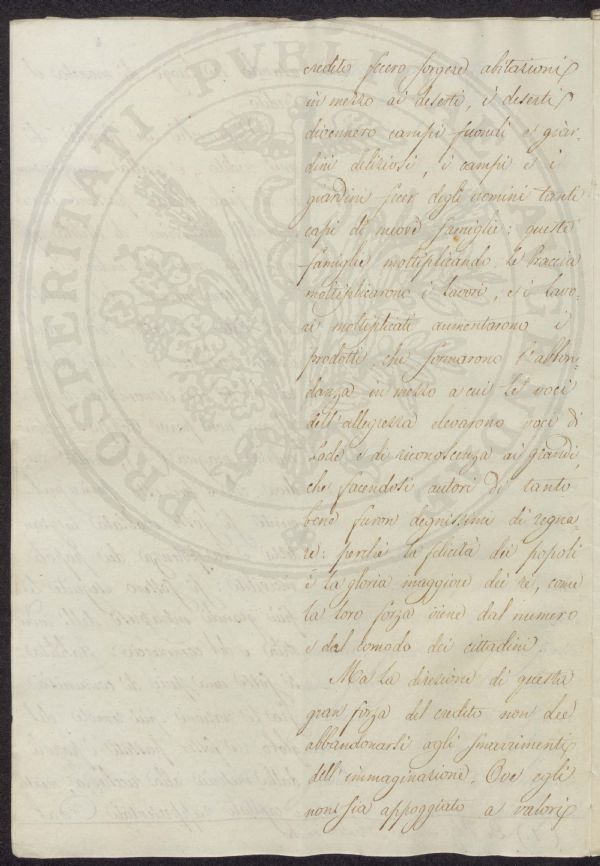 credito fecero sorgere abitazioni
in mezzo ai deserti, i deserti
divennero campi fecondi e giar-
dini deliziosi, i campi e i
giardini fecer degli uomini tanti
capi di nuove famiglie: queste
famiglie moltiplicando le braccia
moltiplicarono i lavori, e i lavo-
ri moltiplicati aumentarono i
prodotti, che formarono l'abbon-
danza in mezzo a cui le voci
dell'allegrezza elevarono voci di
lode e di riconoscenza ai grandi,
che facendosi autori di tanto
bene furon degnissimi di regna-
re: perchè la felicità dei popoli
è la gloria maggiore dei re, come
la loro forza viene dal numero
e dal comodo dei cittadini.
Ma la direzione di questa
gran forza del credito non dee
abbandonarsi agli smarrimenti
dell'immaginazione. Ove egli
non sia appoggiato a valori
PROSPERITATI PVBLICAE AVGENDAE